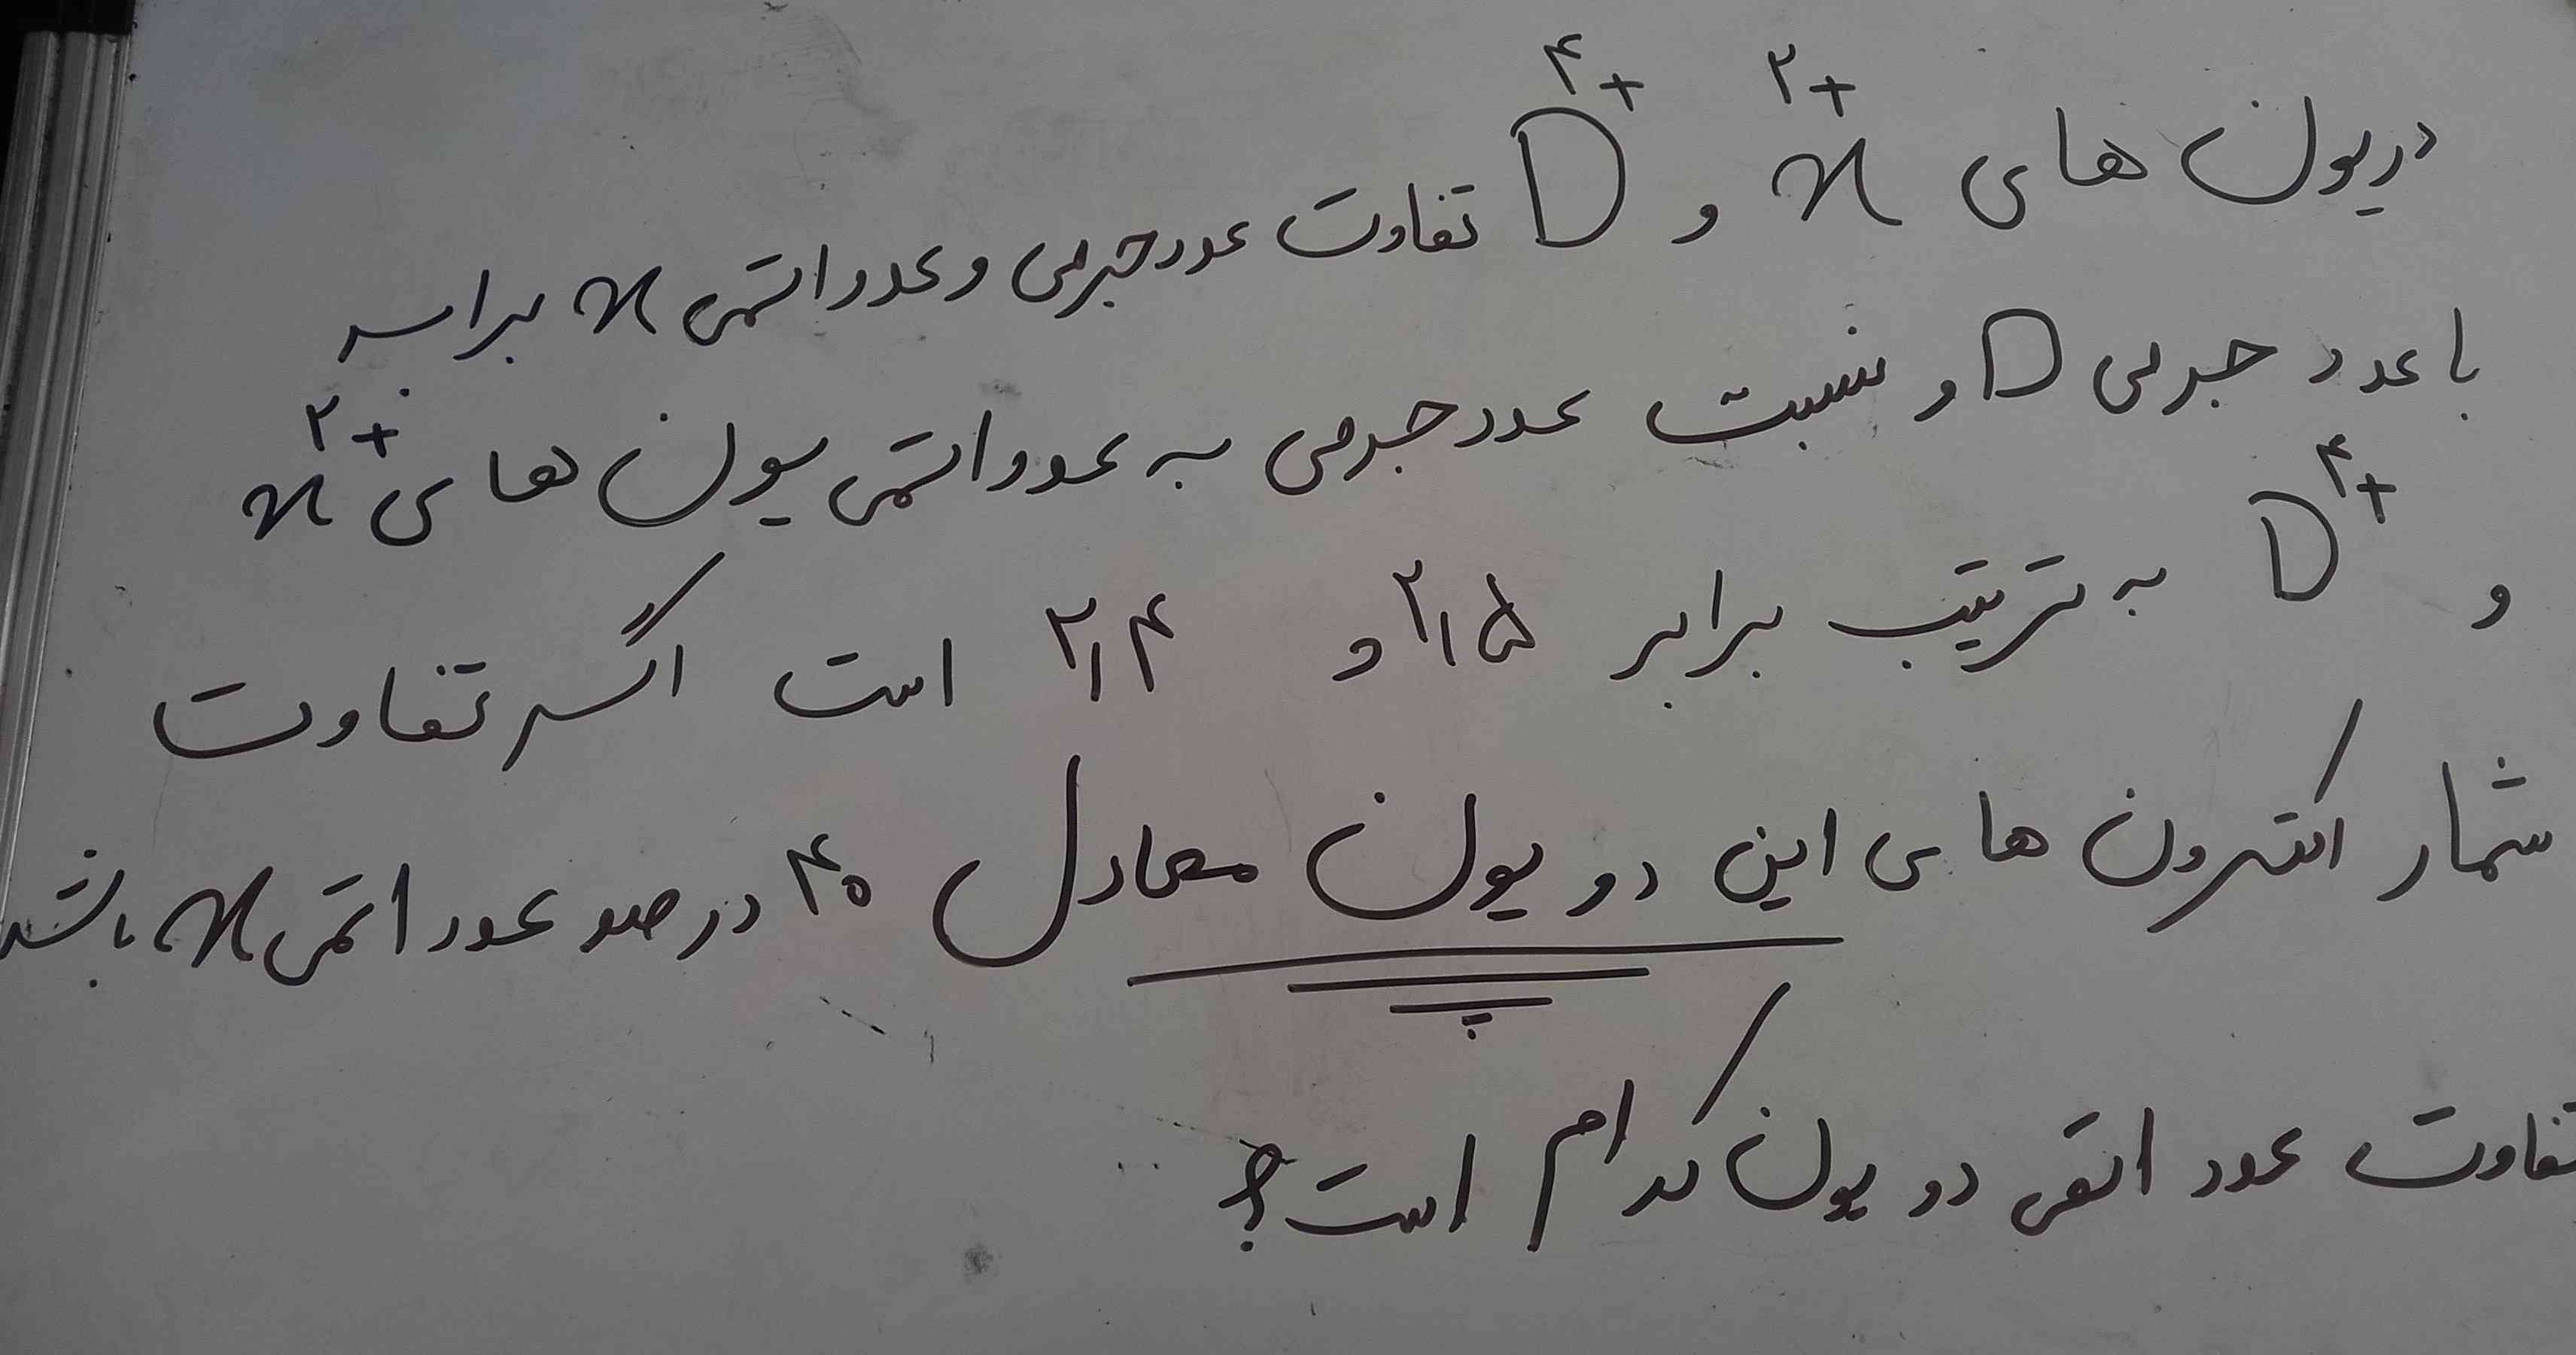 در یون های x²⁺ و D⁴⁺ تفاوت عدد جرمی و عدد اتمی x برابر
با عدد جرمی D و نسبت عدد جرمی به عدد اتمی یون های x²⁺
و D⁴⁺ به ترتیب برابر ۲٫۵ و ۲٫۴ است اگر تفاوت
شمار الکترون های این دو یون معادل ۴۰ درصد عدد اتمی x باشد
تفاوت عدد اتمی دو یون کدام است؟